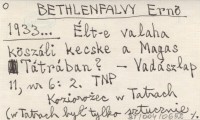 BETHLENFALVY Ernő
1933... Élt-e valaha
kőszáli kecske a Magas
Tátrában? – Vadászlap
11, nr 6: 2. TNP
Koziorożec w Tatrach
(w Tatrach był tylko sztucznie